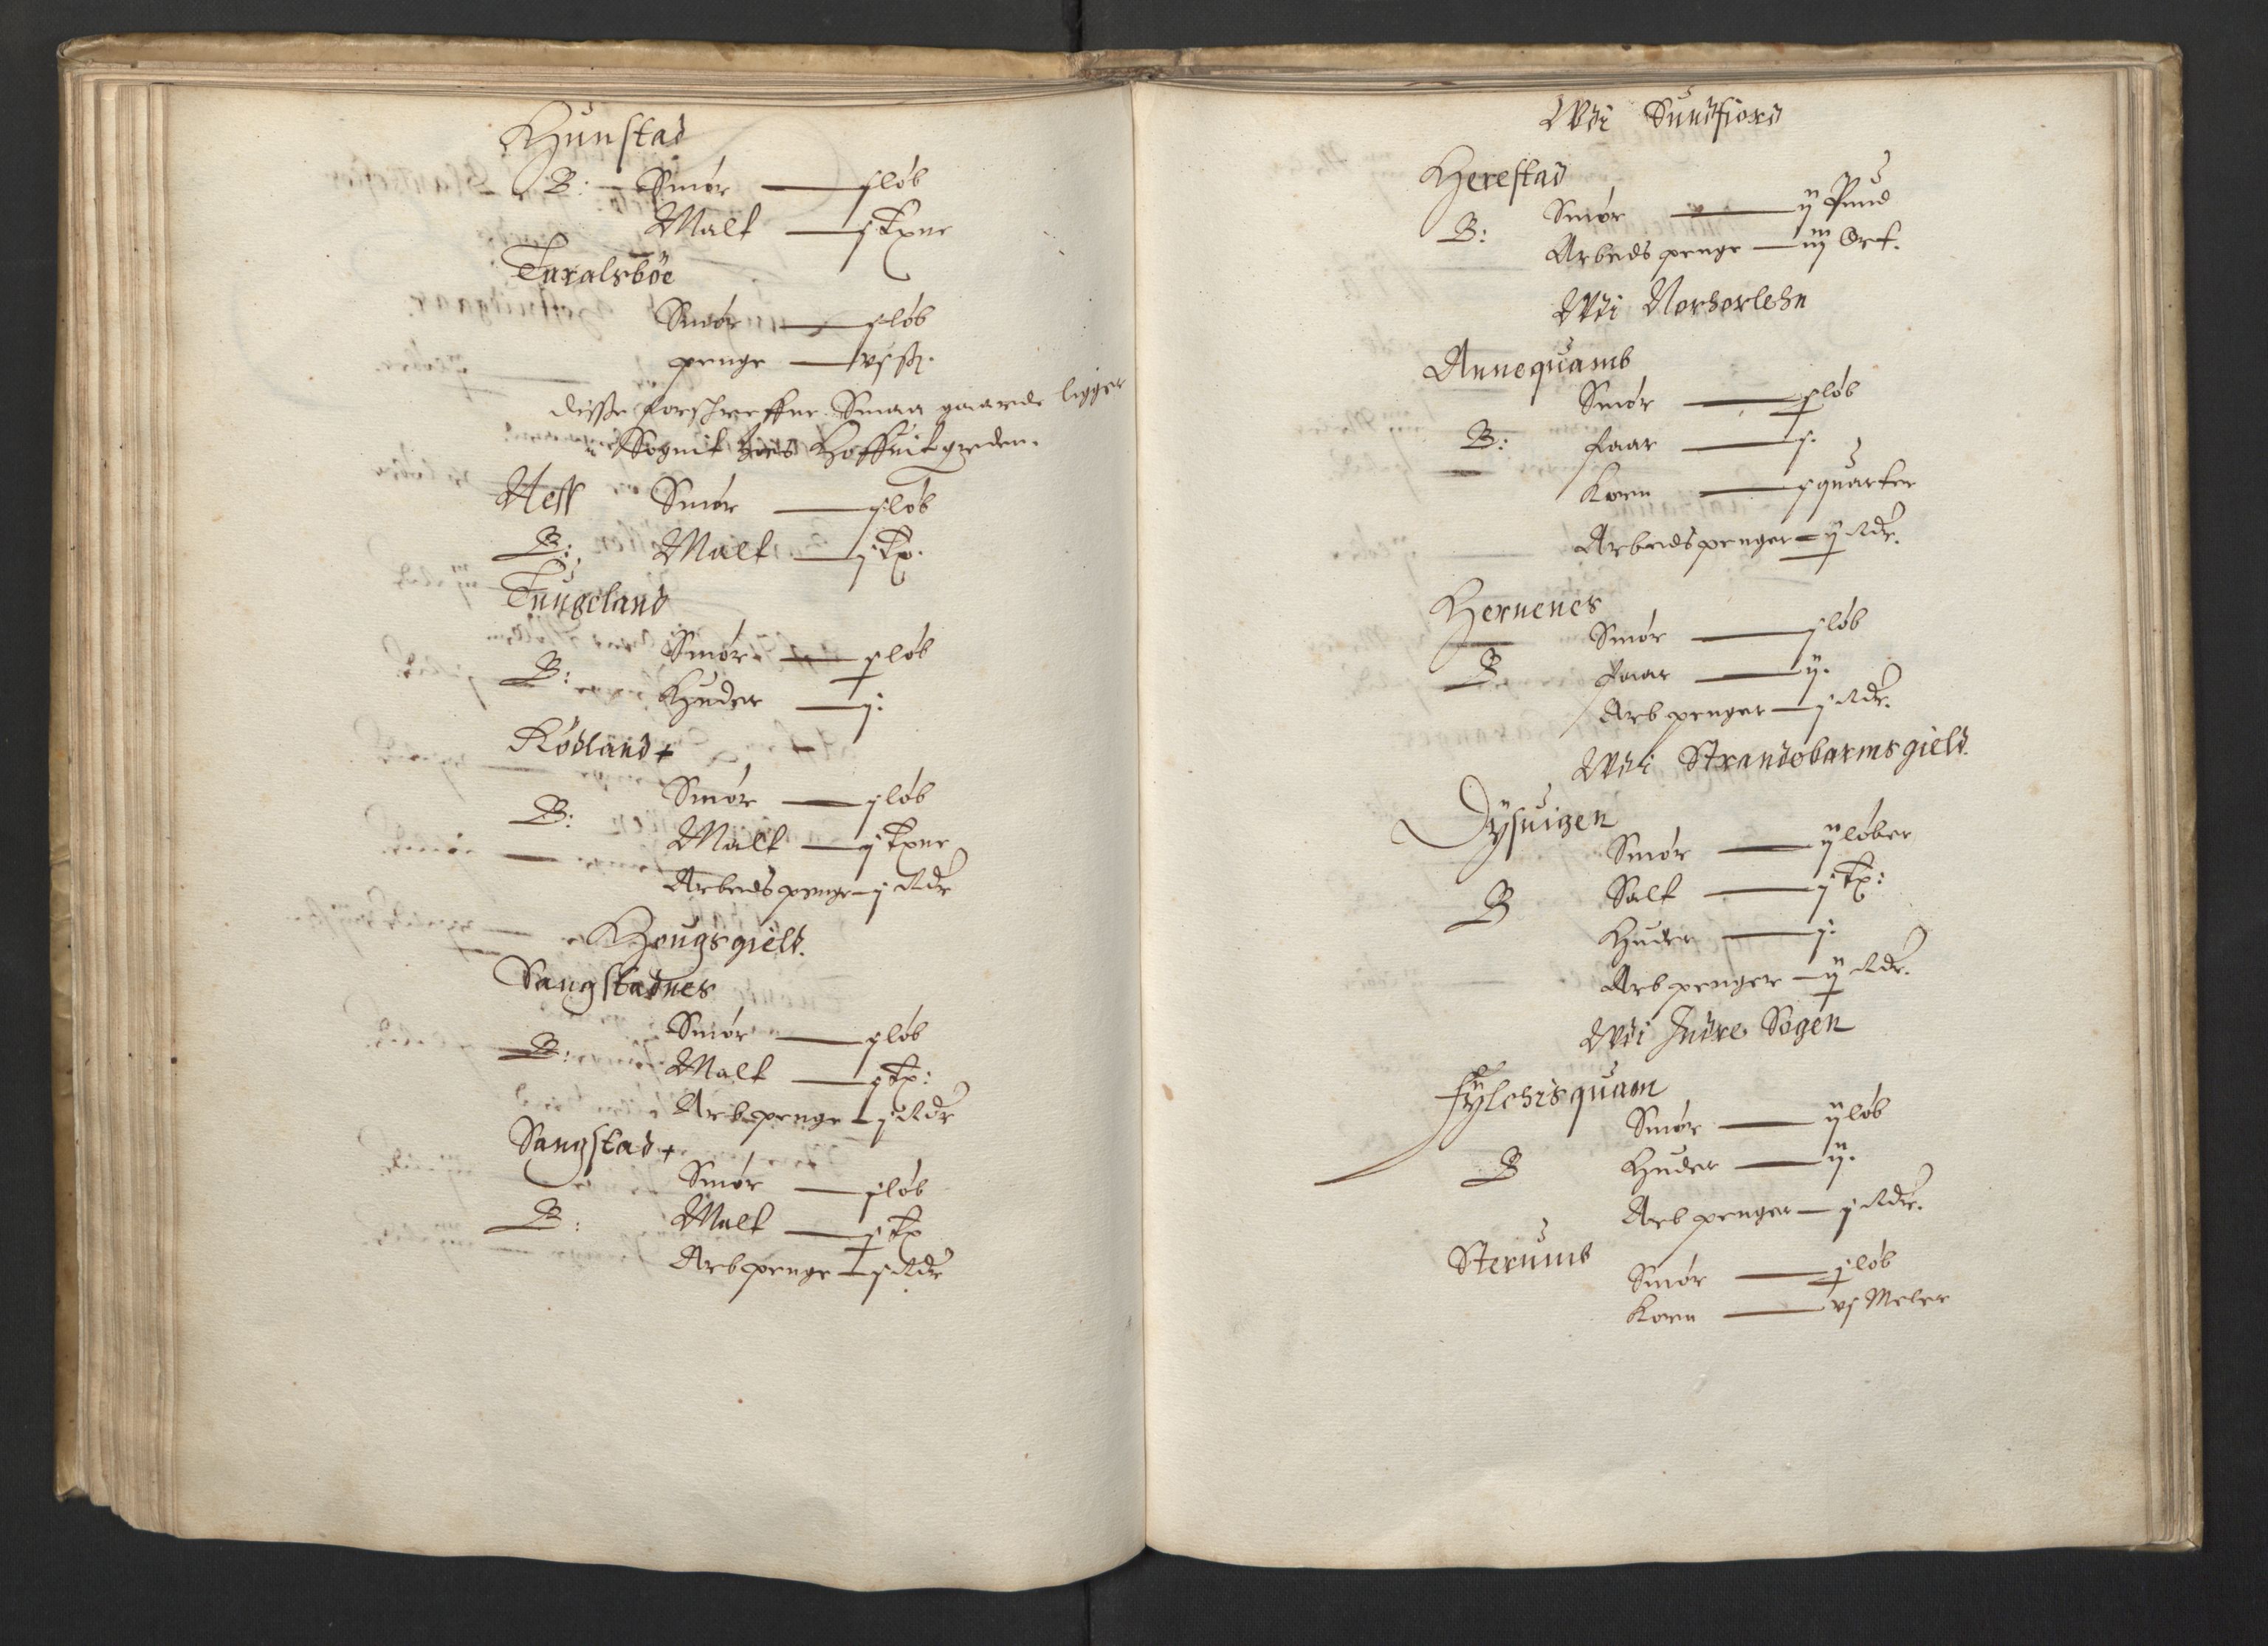 Hunstad
B: Smør — j løb
Malt — j Tpne
Taralsböe
Smør — j løb
penge — vj sk.
disse forschreffne Smaa gaarde ligger
i Sognit hoes Hoffuitgreden.
Ness Smør — j løb
B: Malt — j tp.
Tungeland
Smør — j løb
B: Huder — j:
Rödland +
Smør — j løb
B: Malt — j Tpne
Arbeds penge — j Rdr
Hougsgield.
Sangstadnes
Smør — j løb
B: Malt — j tp:
Arb penge — j Rdr
Sangstad +
Smør — j løb
B: Malt — j tp
Arb penge — j Rdr
Wdi Sundfiord
Herestad
Smør — ij Pund
B: Arbeds penge — iij Ort.
Wdi Norhorlehn
Annequamb
Smør — j løb
B: faar — j.
Korn — j quarter
Arbeds penger — ij Rdr.
Hernenes
Smør — j løb
B faar — ij.
Arb penger — j Rdr.
Wdi Strandebarms gield.
Dysuigen
Smør — ij løber
B Salt — j tp:
Huder — j.
Arb penger — ij Rdr.
Wdi Indre Sogen
Fylchisquam
Smør — ij løb
B Huder — ij.
Arb penger — j Rdr.
Sterumb
Smør — j løb
Korn — vj Meler